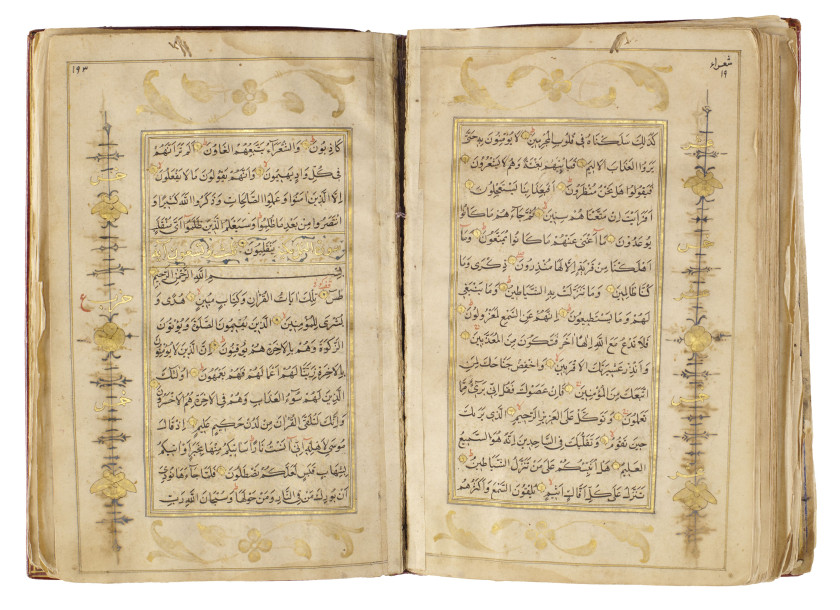 شعراء
١٩
كَذٰلِكَ سَلَكْنَاهُ فِي قُلُوبِ الْمُجْرِمِينَ لَا يُؤْمِنُونَ بِهِ حَتَّى
يَرَوُا الْعَذَابَ الْأَلِيمَ فَيَأْتِيَهُمْ بَغْتَةً وَهُمْ لَا يَشْعُرُونَ
فَيَقُولُوا هَلْ نَحْنُ مُنْظَرُونَ أَفَبِعَذَابِنَا يَسْتَعْجِلُونَ
أَفَرَأَيْتَ إِنْ مَتَّعْنَاهُمْ سِنِينَ ثُمَّ جَاءَهُمْ مَا كَانُوا
يُوعَدُونَ مَا أَغْنَى عَنْهُمْ مَا كَانُوا يُمَتَّعُونَ وَمَا
أَهْلَكْنَا مِنْ قَرْيَةٍ إِلَّا لَهَا مُنْذِرُونَ ذِكْرَى وَمَا
كُنَّا ظَالِمِينَ وَمَا تَنَزَّلَتْ بِهِ الشَّيَاطِينُ وَمَا يَنْبَغِي
لَهُمْ وَمَا يَسْتَطِيعُونَ إِنَّهُمْ عَنِ السَّمْعِ لَمَعْزُولُونَ
فَلَا تَدْعُ مَعَ اللّٰهِ إِلٰهًا آخَرَ فَتَكُونَ مِنَ الْمُعَذَّبِينَ
وَأَنْذِرْ عَشِيرَتَكَ الْأَقْرَبِينَ وَاخْفِضْ جَنَاحَكَ لِمَنِ
اتَّبَعَكَ مِنَ الْمُؤْمِنِينَ فَإِنْ عَصَوْكَ فَقُلْ إِنِّي بَرِيءٌ مِمَّا
تَعْمَلُونَ وَتَوَكَّلْ عَلَى الْعَزِيزِ الرَّحِيمِ الَّذِي يَرٰيكَ
حِينَ تَقُومُ وَتَقَلُّبَكَ فِي السَّاجِدِينَ إِنَّهُ هُوَ السَّمِيعُ
الْعَلِيمُ هَلْ أُنَبِّئُكُمْ عَلَى مَنْ تَنَزَّلُ الشَّيَاطِينُ
تَنَزَّلُ عَلَى كُلِّ أَفَّاكٍ أَثِيمٍ يُلْقُونَ السَّمْعَ وَأَكْثَرُهُمْ
١٩٣
كَاذِبُونَ وَالشُّعَرَاءُ يَتَّبِعُهُمُ الْغَاوُونَ أَلَمْ تَرَ أَنَّهُمْ
فِي كُلِّ وَادٍ يَهِيمُونَ وَأَنَّهُمْ يَقُولُونَ مَا لَا يَفْعَلُونَ
إِلَّا الَّذِينَ آمَنُوا وَعَمِلُوا الصَّالِحَاتِ وَذَكَرُوا اللّٰهَ كَثِيرًا وَ
انْتَصَرُوا مِنْ بَعْدِ مَا ظُلِمُوا وَسَيَعْلَمُ الَّذِينَ ظَلَمُوا أَيَّ مُنْقَلَبٍ
يَنْقَلِبُونَ
بِسْمِ اللّٰهِ الرَّحْمٰنِ الرَّحِيمِ
طس تِلْكَ آيَاتُ الْقُرْآنِ وَكِتَابٍ مُبِينٍ هُدًى وَ
بُشْرَى لِلْمُؤْمِنِينَ الَّذِينَ يُقِيمُونَ الصَّلٰوةَ وَيُؤْتُونَ
الزَّكٰوةَ وَهُمْ بِالْآخِرَةِ هُمْ يُوقِنُونَ إِنَّ الَّذِينَ لَا يُؤْمِنُونَ
بِالْآخِرَةِ زَيَّنَّا لَهُمْ أَعْمَالَهُمْ فَهُمْ يَعْمَهُونَ أُولٰئِكَ
الَّذِينَ لَهُمْ سُوءُ الْعَذَابِ وَهُمْ فِي الْآخِرَةِ هُمُ الْأَخْسَرُونَ
وَإِنَّكَ لَتُلَقَّى الْقُرْآنَ مِنْ لَدُنْ حَكِيمٍ عَلِيمٍ إِذْ قَالَ
مُوسَى لِأَهْلِهِ إِنِّي آنَسْتُ نَارًا سَآتِيكُمْ مِنْهَا بِخَبَرٍ أَوْ آتِيكُمْ
بِشِهَابٍ قَبَسٍ لَعَلَّكُمْ تَصْطَلُونَ فَلَمَّا جَاءَهَا نُودِيَ
أَنْ بُورِكَ مَنْ فِي النَّارِ وَمَنْ حَوْلَهَا وَسُبْحَانَ اللّٰهِ رَبِّ